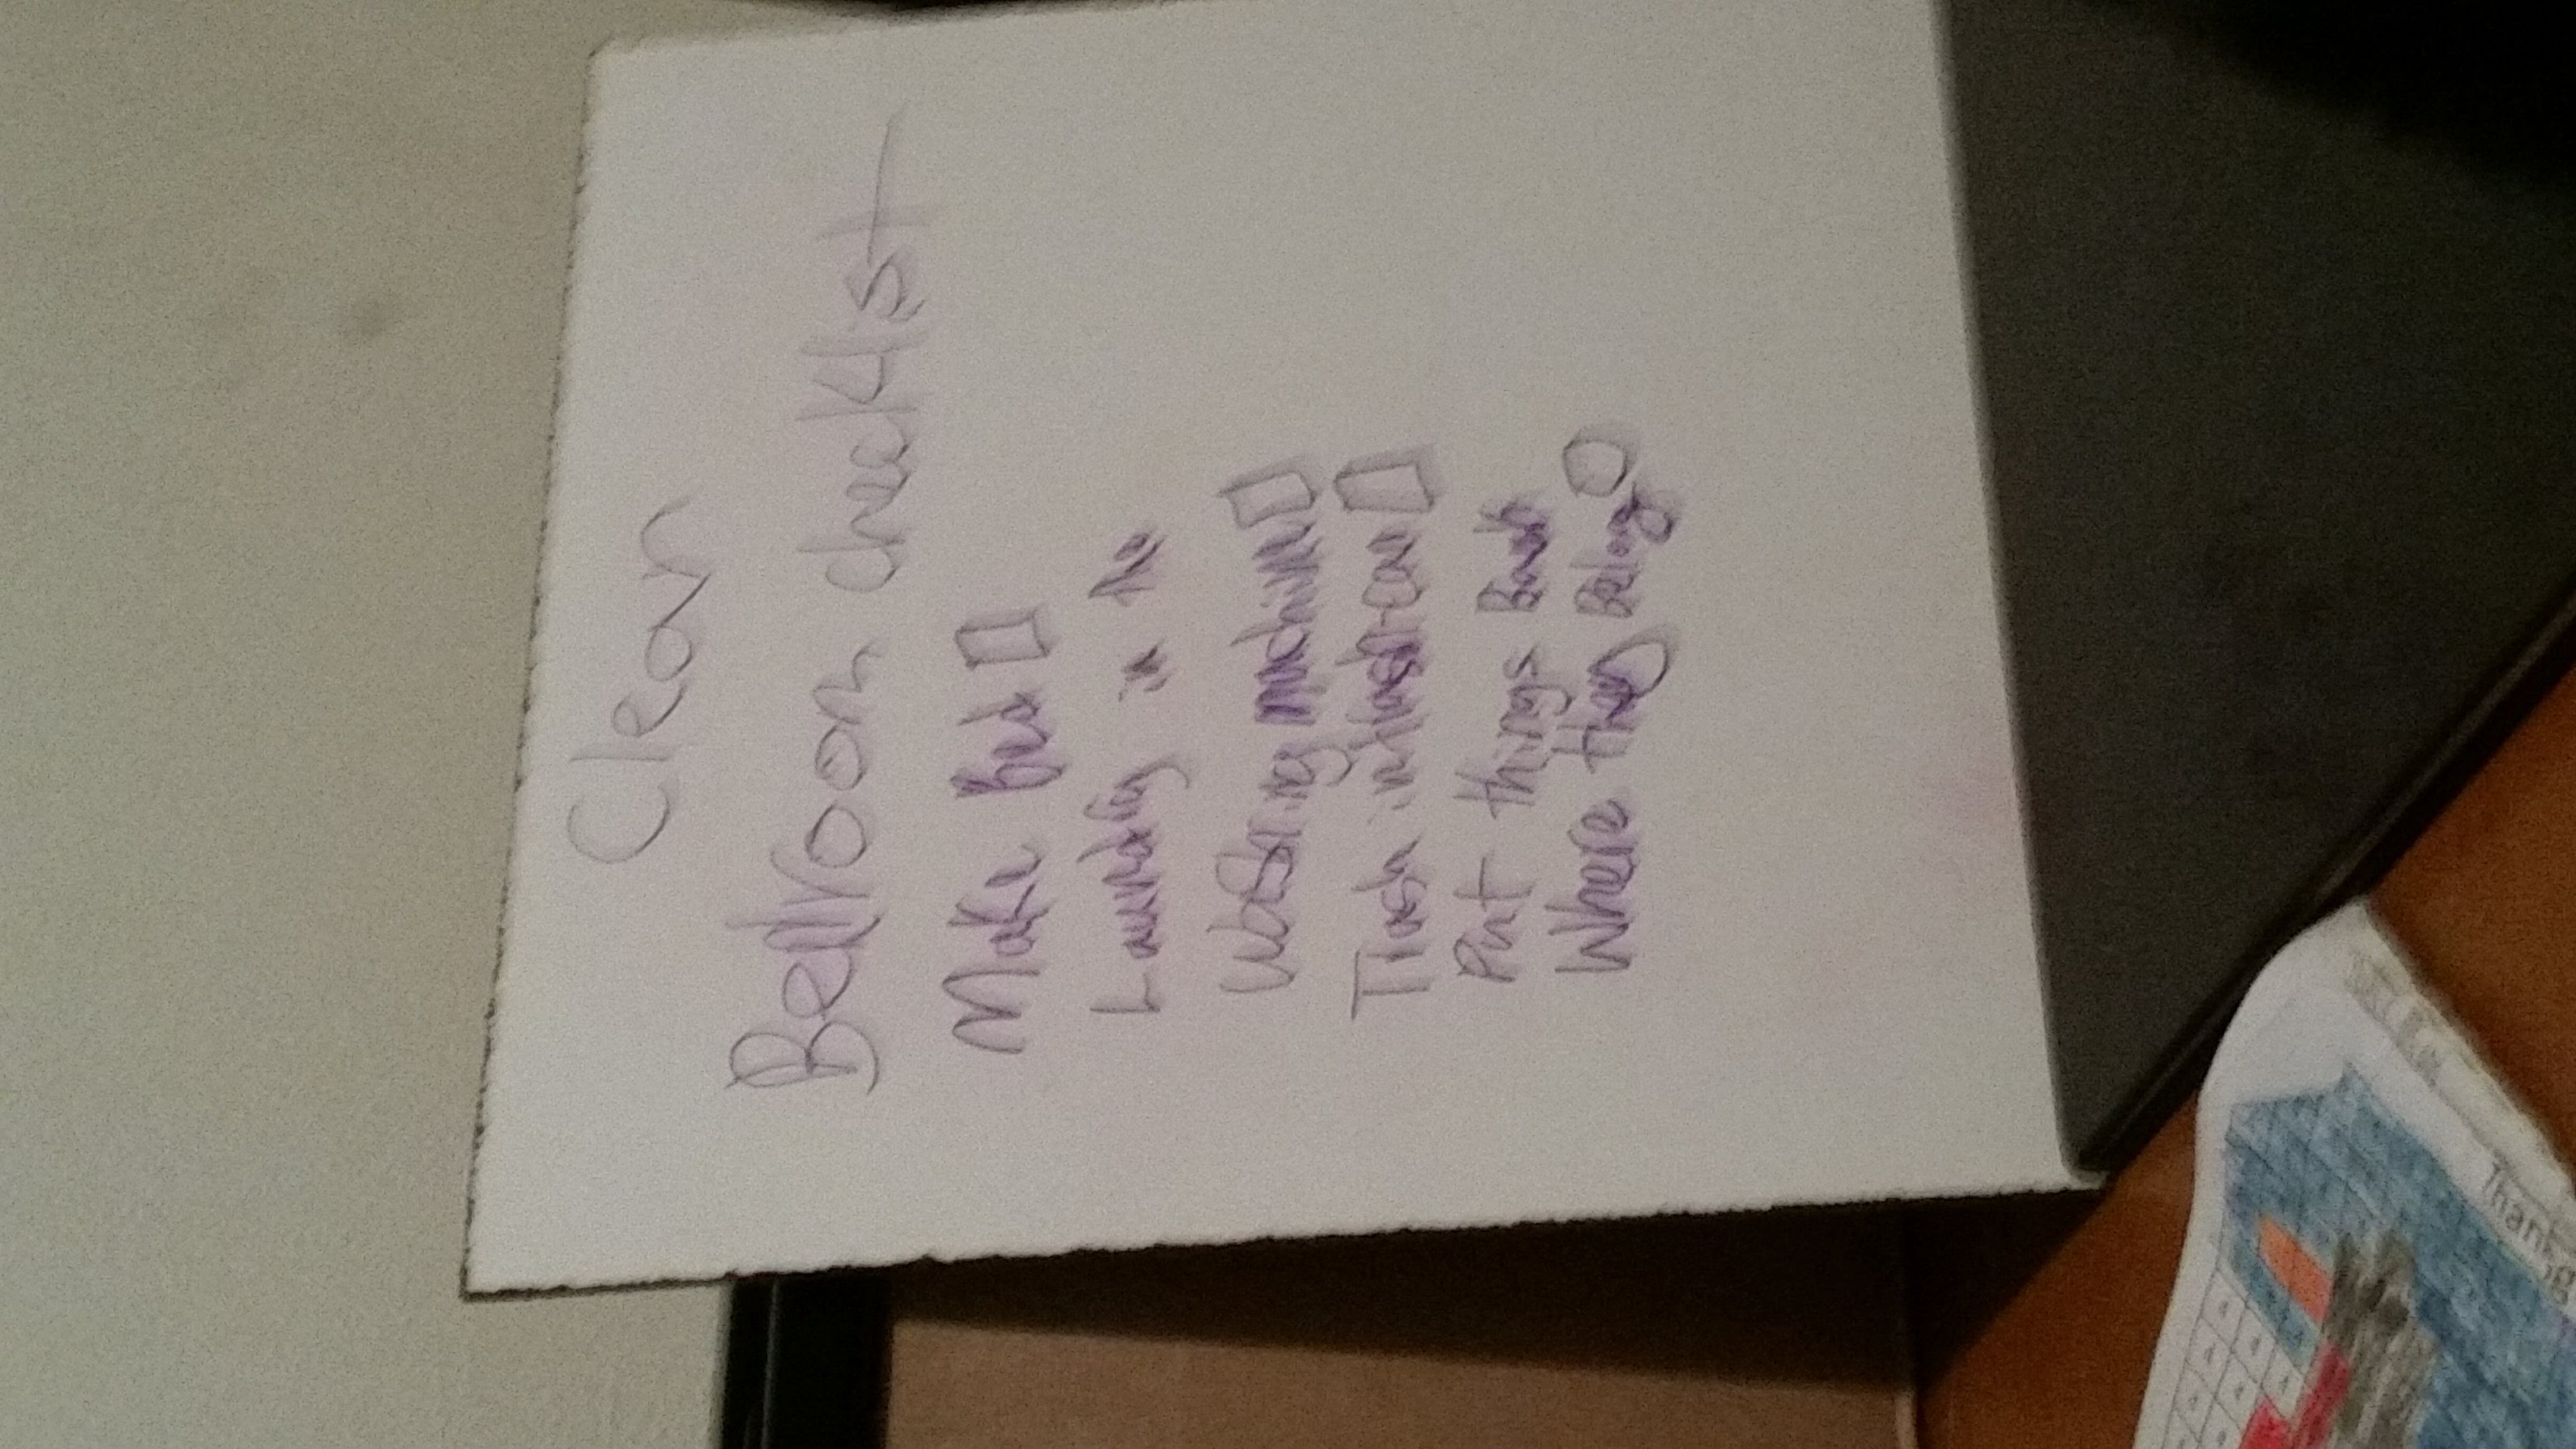 Clean
Bedroom checklist
Make Bed
Laundry in the
Washing machine
Trash in trash-can
Put things Back
Where they Belong
Thank